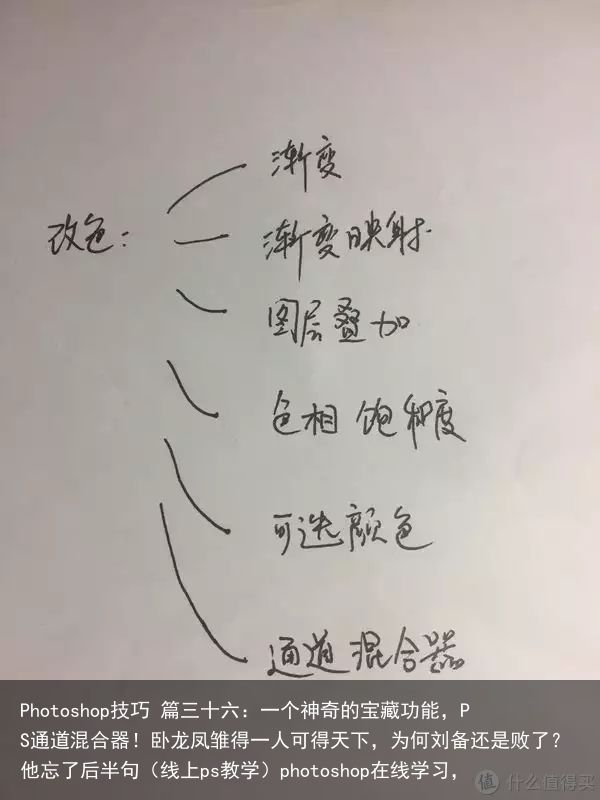 改色：
渐变
渐变映射
图层叠加
色相 饱和度
可选颜色
通道混合器
Photoshop技巧 篇三十六：一个神奇的宝藏功能，P
S通道混合器！卧龙凤雏得一人可得天下，为何刘备还是败了？
他忘了后半句（线上ps教学）photoshop在线学习，
值 什么值得买